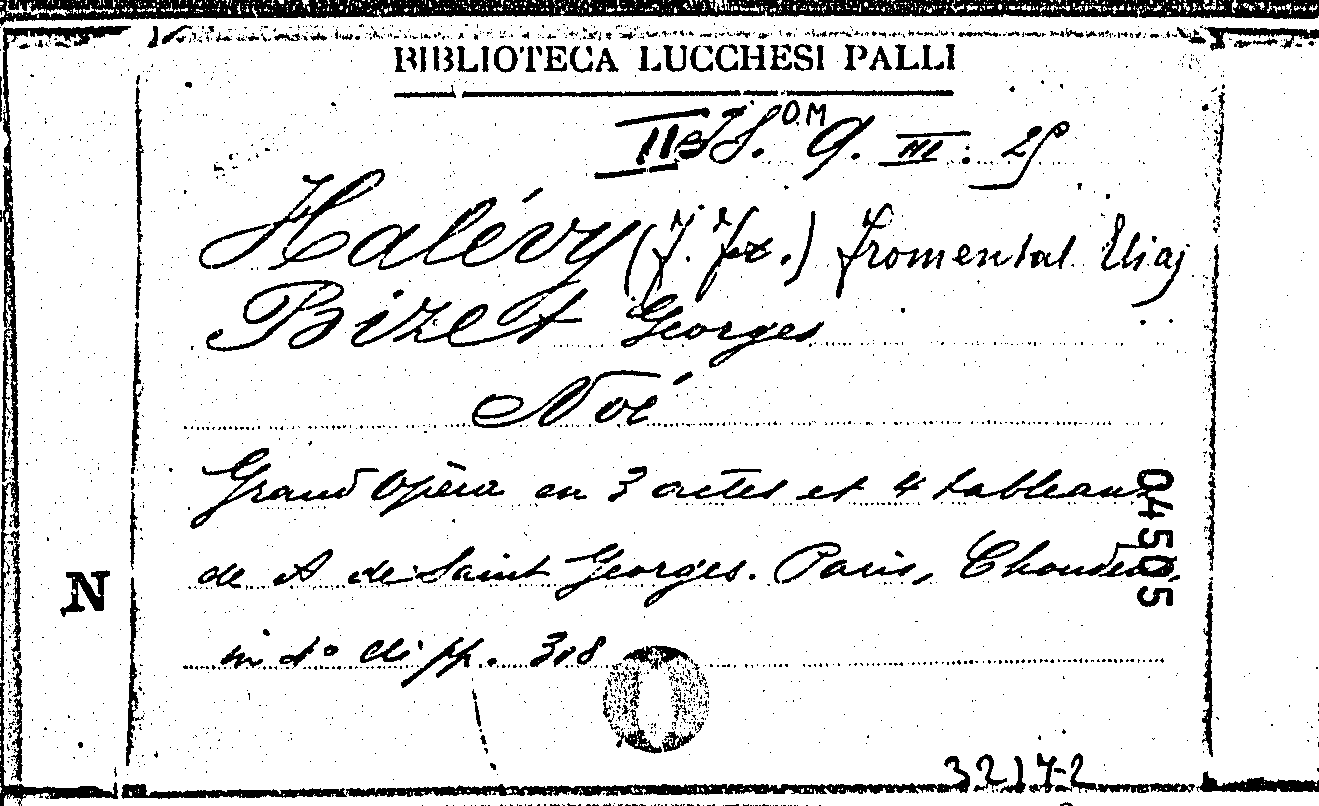 BIBLIOTECA LUCCHESI PALLI
O.M
9. III. 25
Halévy (J. Fr.) Fromental Elias
Bizet Georges
Noé
Grand Opéra en 3 actes et 4 tableaux
de A de Saint Georges. Paris, Choudens,
in 4° di pp. 308
04505
N
O